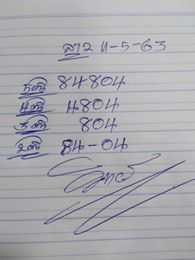 ลาว 11-5-63
5ตัว 84804
4ตัว 4804
3ตัว 804
2ตัว 84-04